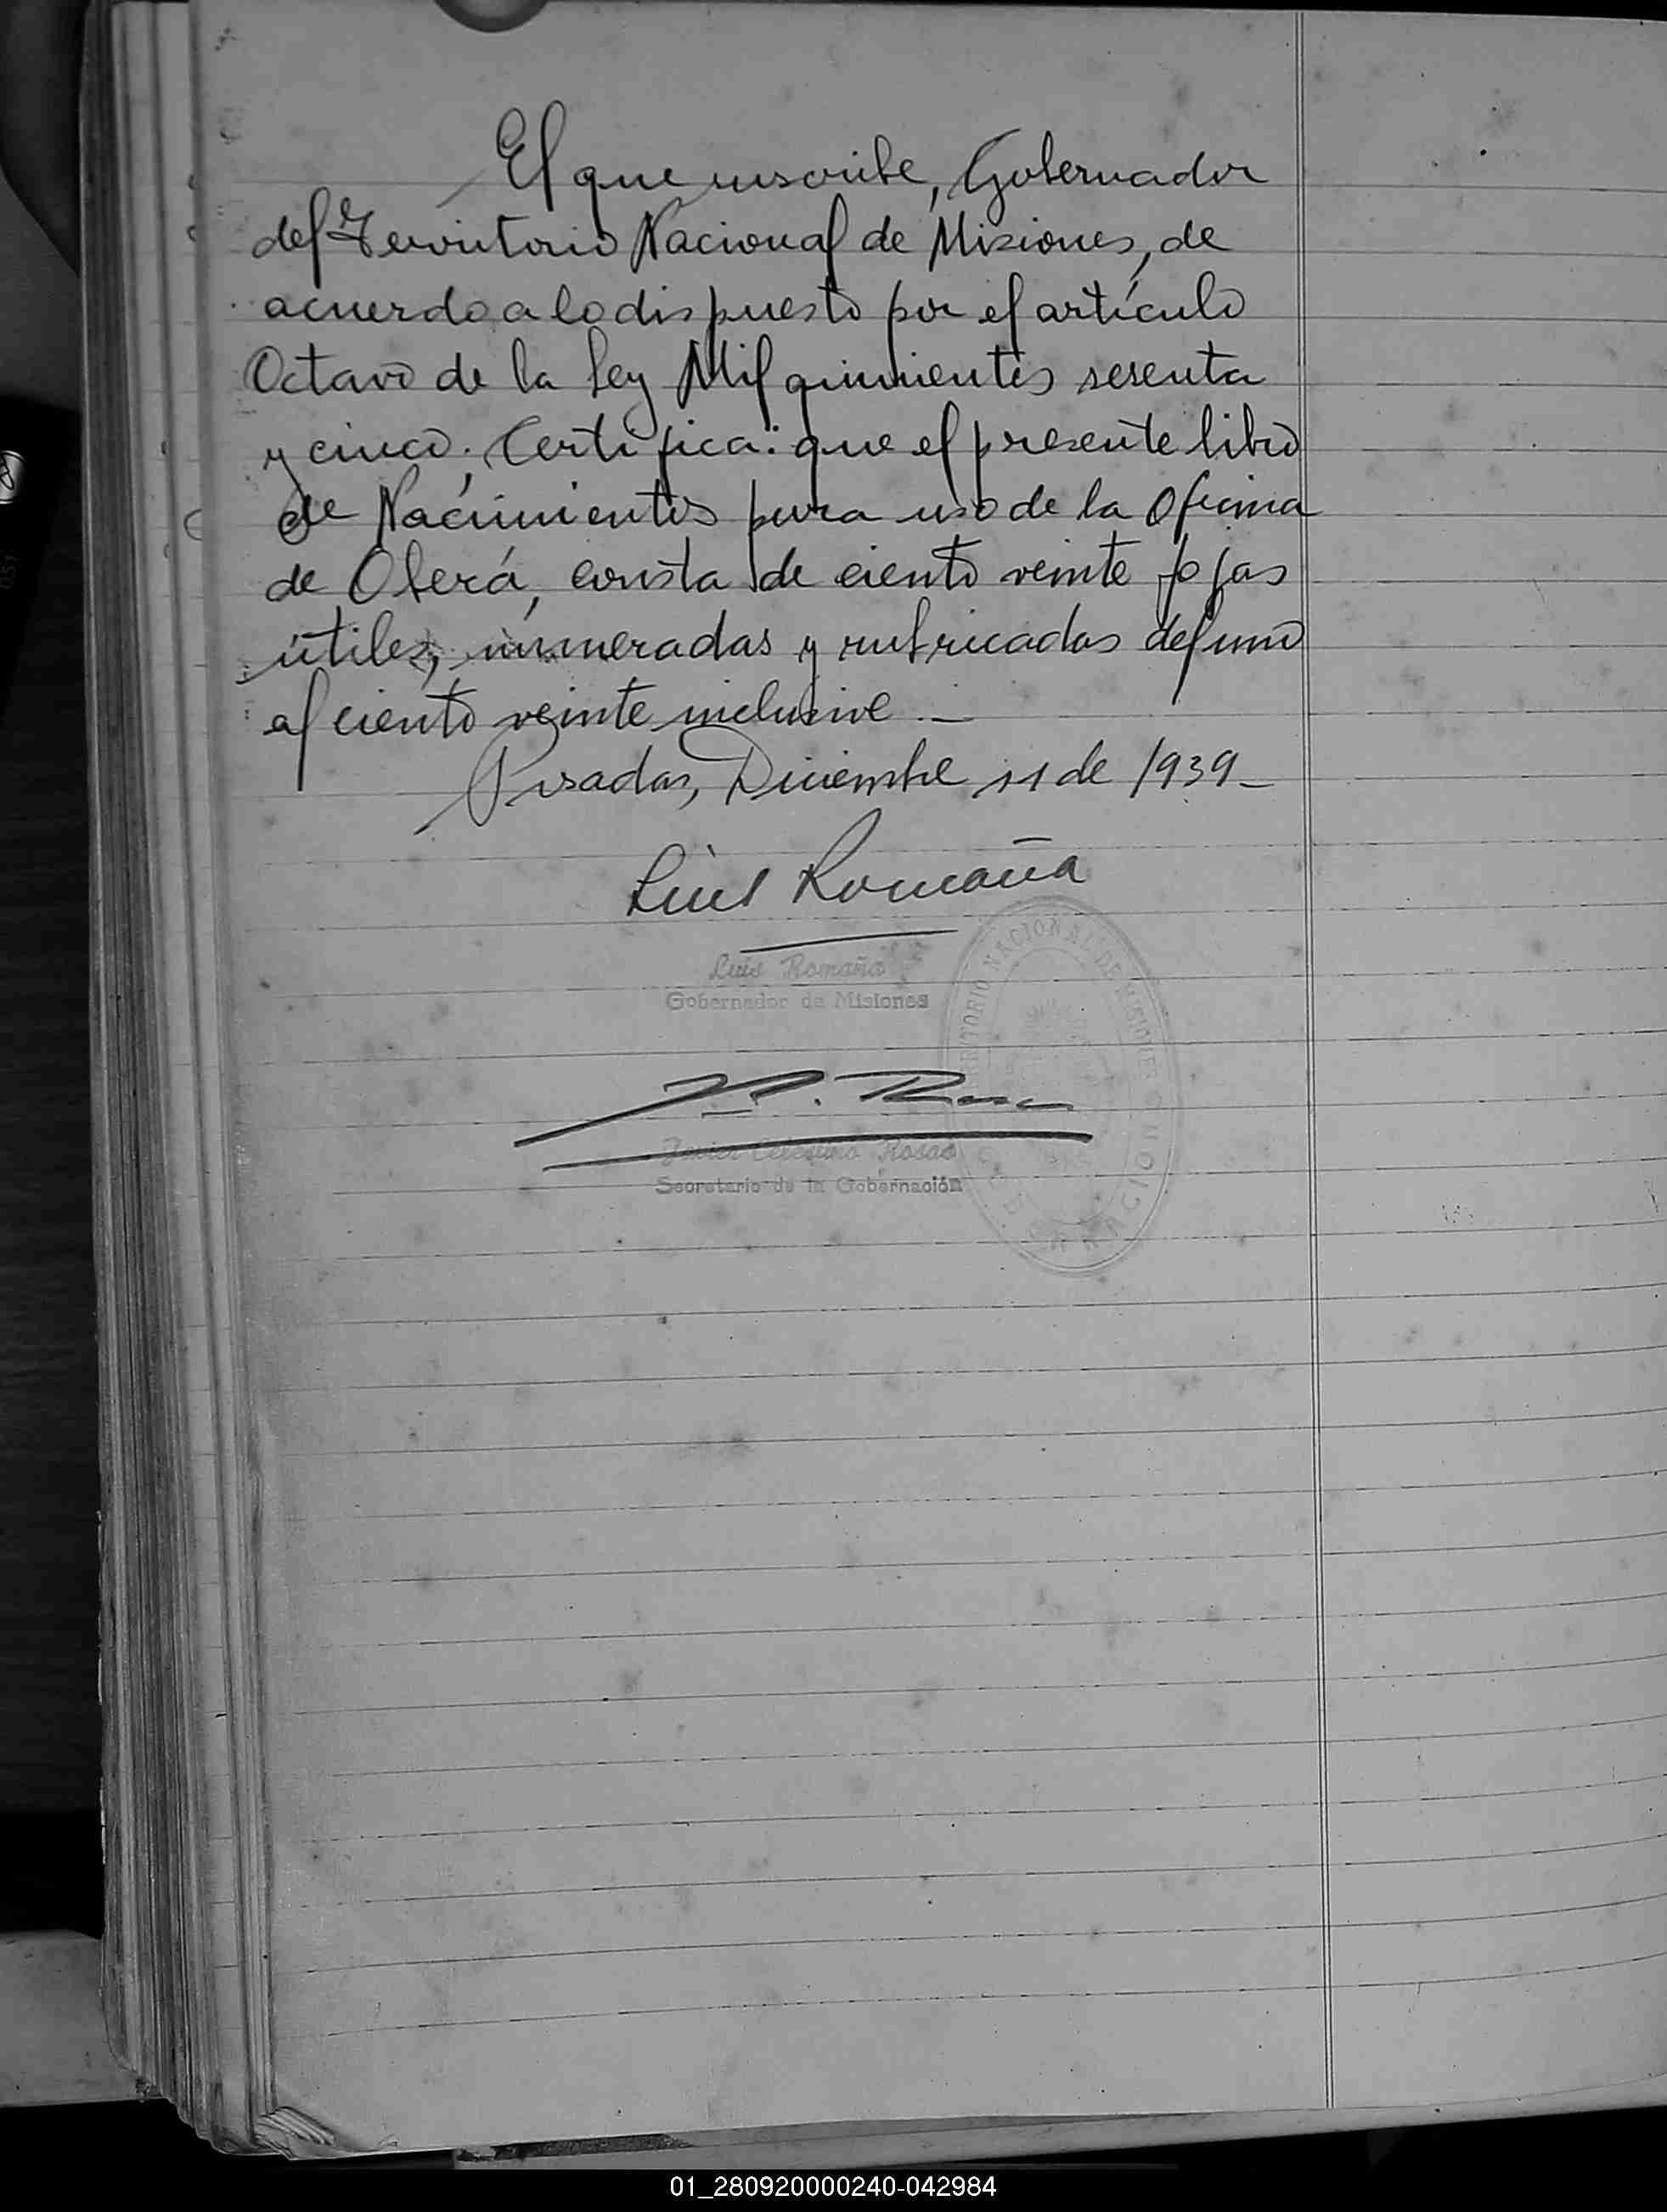 El que suscribe, Gobernador
del Territorio Nacional de Misiones, de
acuerdo a lo dispuesto por el artículo
Octavo de la Ley Mil quinientos sesenta
y cinco. Certifica: que el presente libro
de Nacimientos para uso de la Oficina
de Oberá, consta de ciento veinte fojas
útiles, numeradas y rubricadas del uno
al ciento veinte inclusive —
Posadas, Diciembre 11 de 1939-
Luis Romaña
Luis Romaña
Gobernador de Misiones
TERRITORIO NACIONAL DE MISIONES
GOBERNACION
Javier Celestino Rosas
Secretario de la Gobernación
01_280920000240-042984